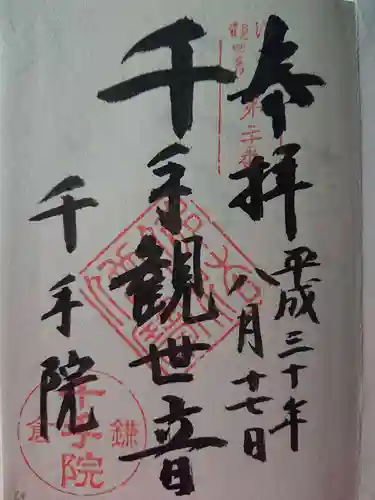 奉拝
平成三十年
八月十七日
千手観世音
千手院
鎌倉
千手院